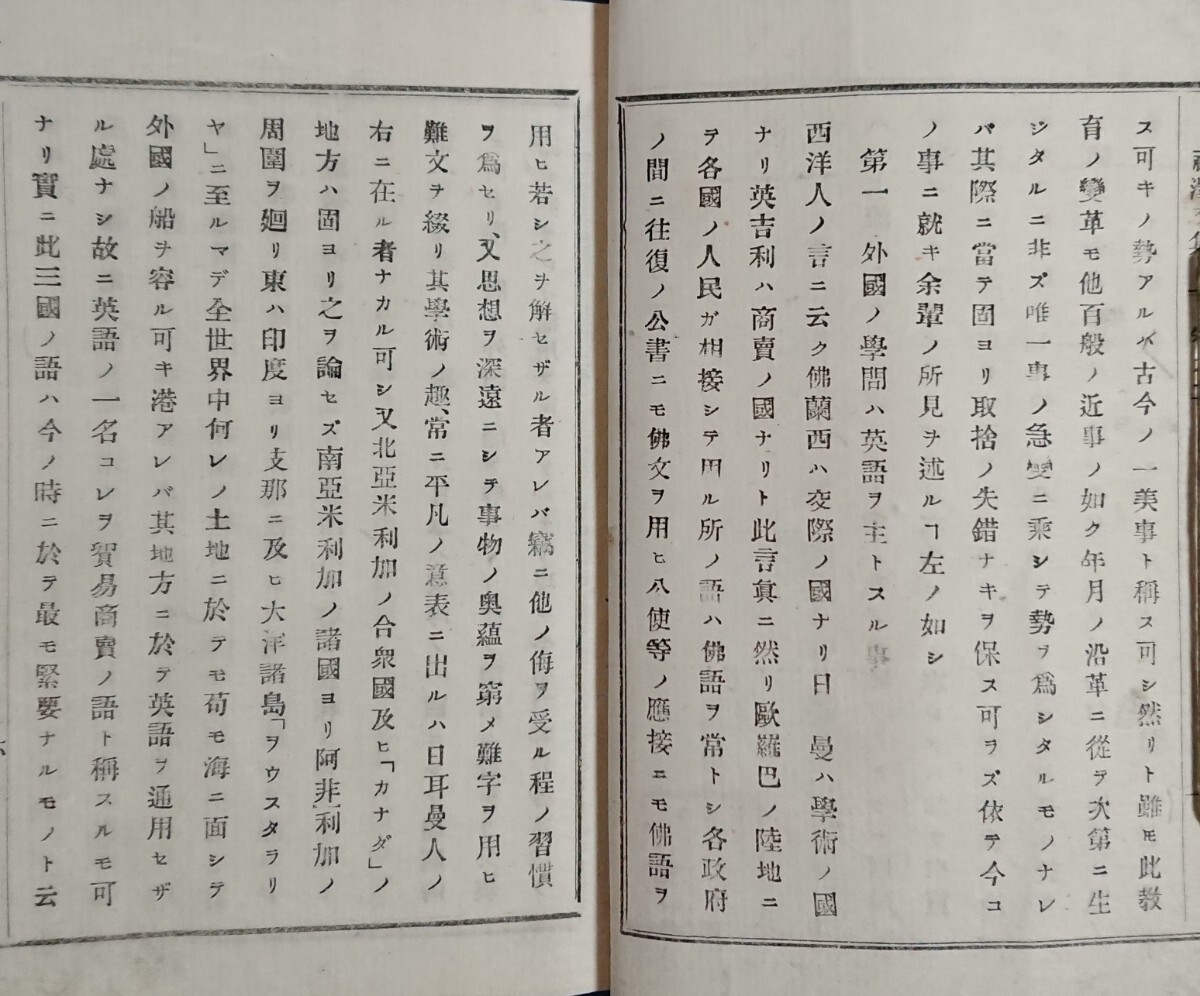 ス可キノ勢アルハ古今ノ一美事ト稱ス可シ然リト雖モ此教
育ノ變革モ他百般ノ近事ノ如ク年月ノ沿革ニ從テ次第ニ生
ジタルニ非ズ唯一事ノ急變ニ乘シテ勢ヲ爲シタルモノナレ
バ其際ニ當テ固ヨリ取捨ノ失錯ナキヲ保ス可ラズ依テ今コ
ノ事ニ就キ余輩ノ所見ヲ述ルヿ左ノ如シ
第一 外國ノ學問ハ英語ヲ主トスル事
西洋人ノ言ニ云ク佛蘭西ハ交際ノ國ナリ日 曼ハ學術ノ國
ナリ英吉利ハ商賣ノ國ナリト此言眞ニ然リ歐羅巴ノ陸地ニ
ヲ各國ノ人民ガ相接シテ用ル所ノ語ハ佛語ヲ常トシ各政府
ノ間ニ往復ノ公書ニモ佛文ヲ用ヒ公使等ノ應接ニモ佛語ヲ
用ヒ若シ之ヲ解セザル者アレバ竊ニ他ノ侮ヲ受ル程ノ習慣
ヲ爲セリ、又思想ヲ深遠ニシテ事物ノ奧蘊ヲ窮メ難字ヲ用ヒ
難文ヲ綴リ其學術ノ趣、常ニ平凡ノ意表ニ出ルハ日耳曼人ノ
右ニ在ル者ナカル可シ又北亞米利加ノ合衆國及ヒ「カナダ」ノ
地方ハ固ヨリ之ヲ論セズ南亞米利加ノ諸國ヨリ阿非利加ノ
周圍ヲ廻リ東ハ印度ヨリ支那ニ及ヒ大洋諸島「ヲウスタラリ
ヤ」ニ至ルマデ全世界中何レノ土地ニ於テモ苟モ海ニ面シテ
外國ノ船ヲ容ル可キ港アレバ其地方ニ於テ英語ヲ通用セザ
ル處ナシ故ニ英語ノ一名コレヲ貿易商賣ノ語ト稱スルモ可
ナリ實ニ此三國ノ語ハ今ノ時ニ於テ最モ緊要ナルモノト云